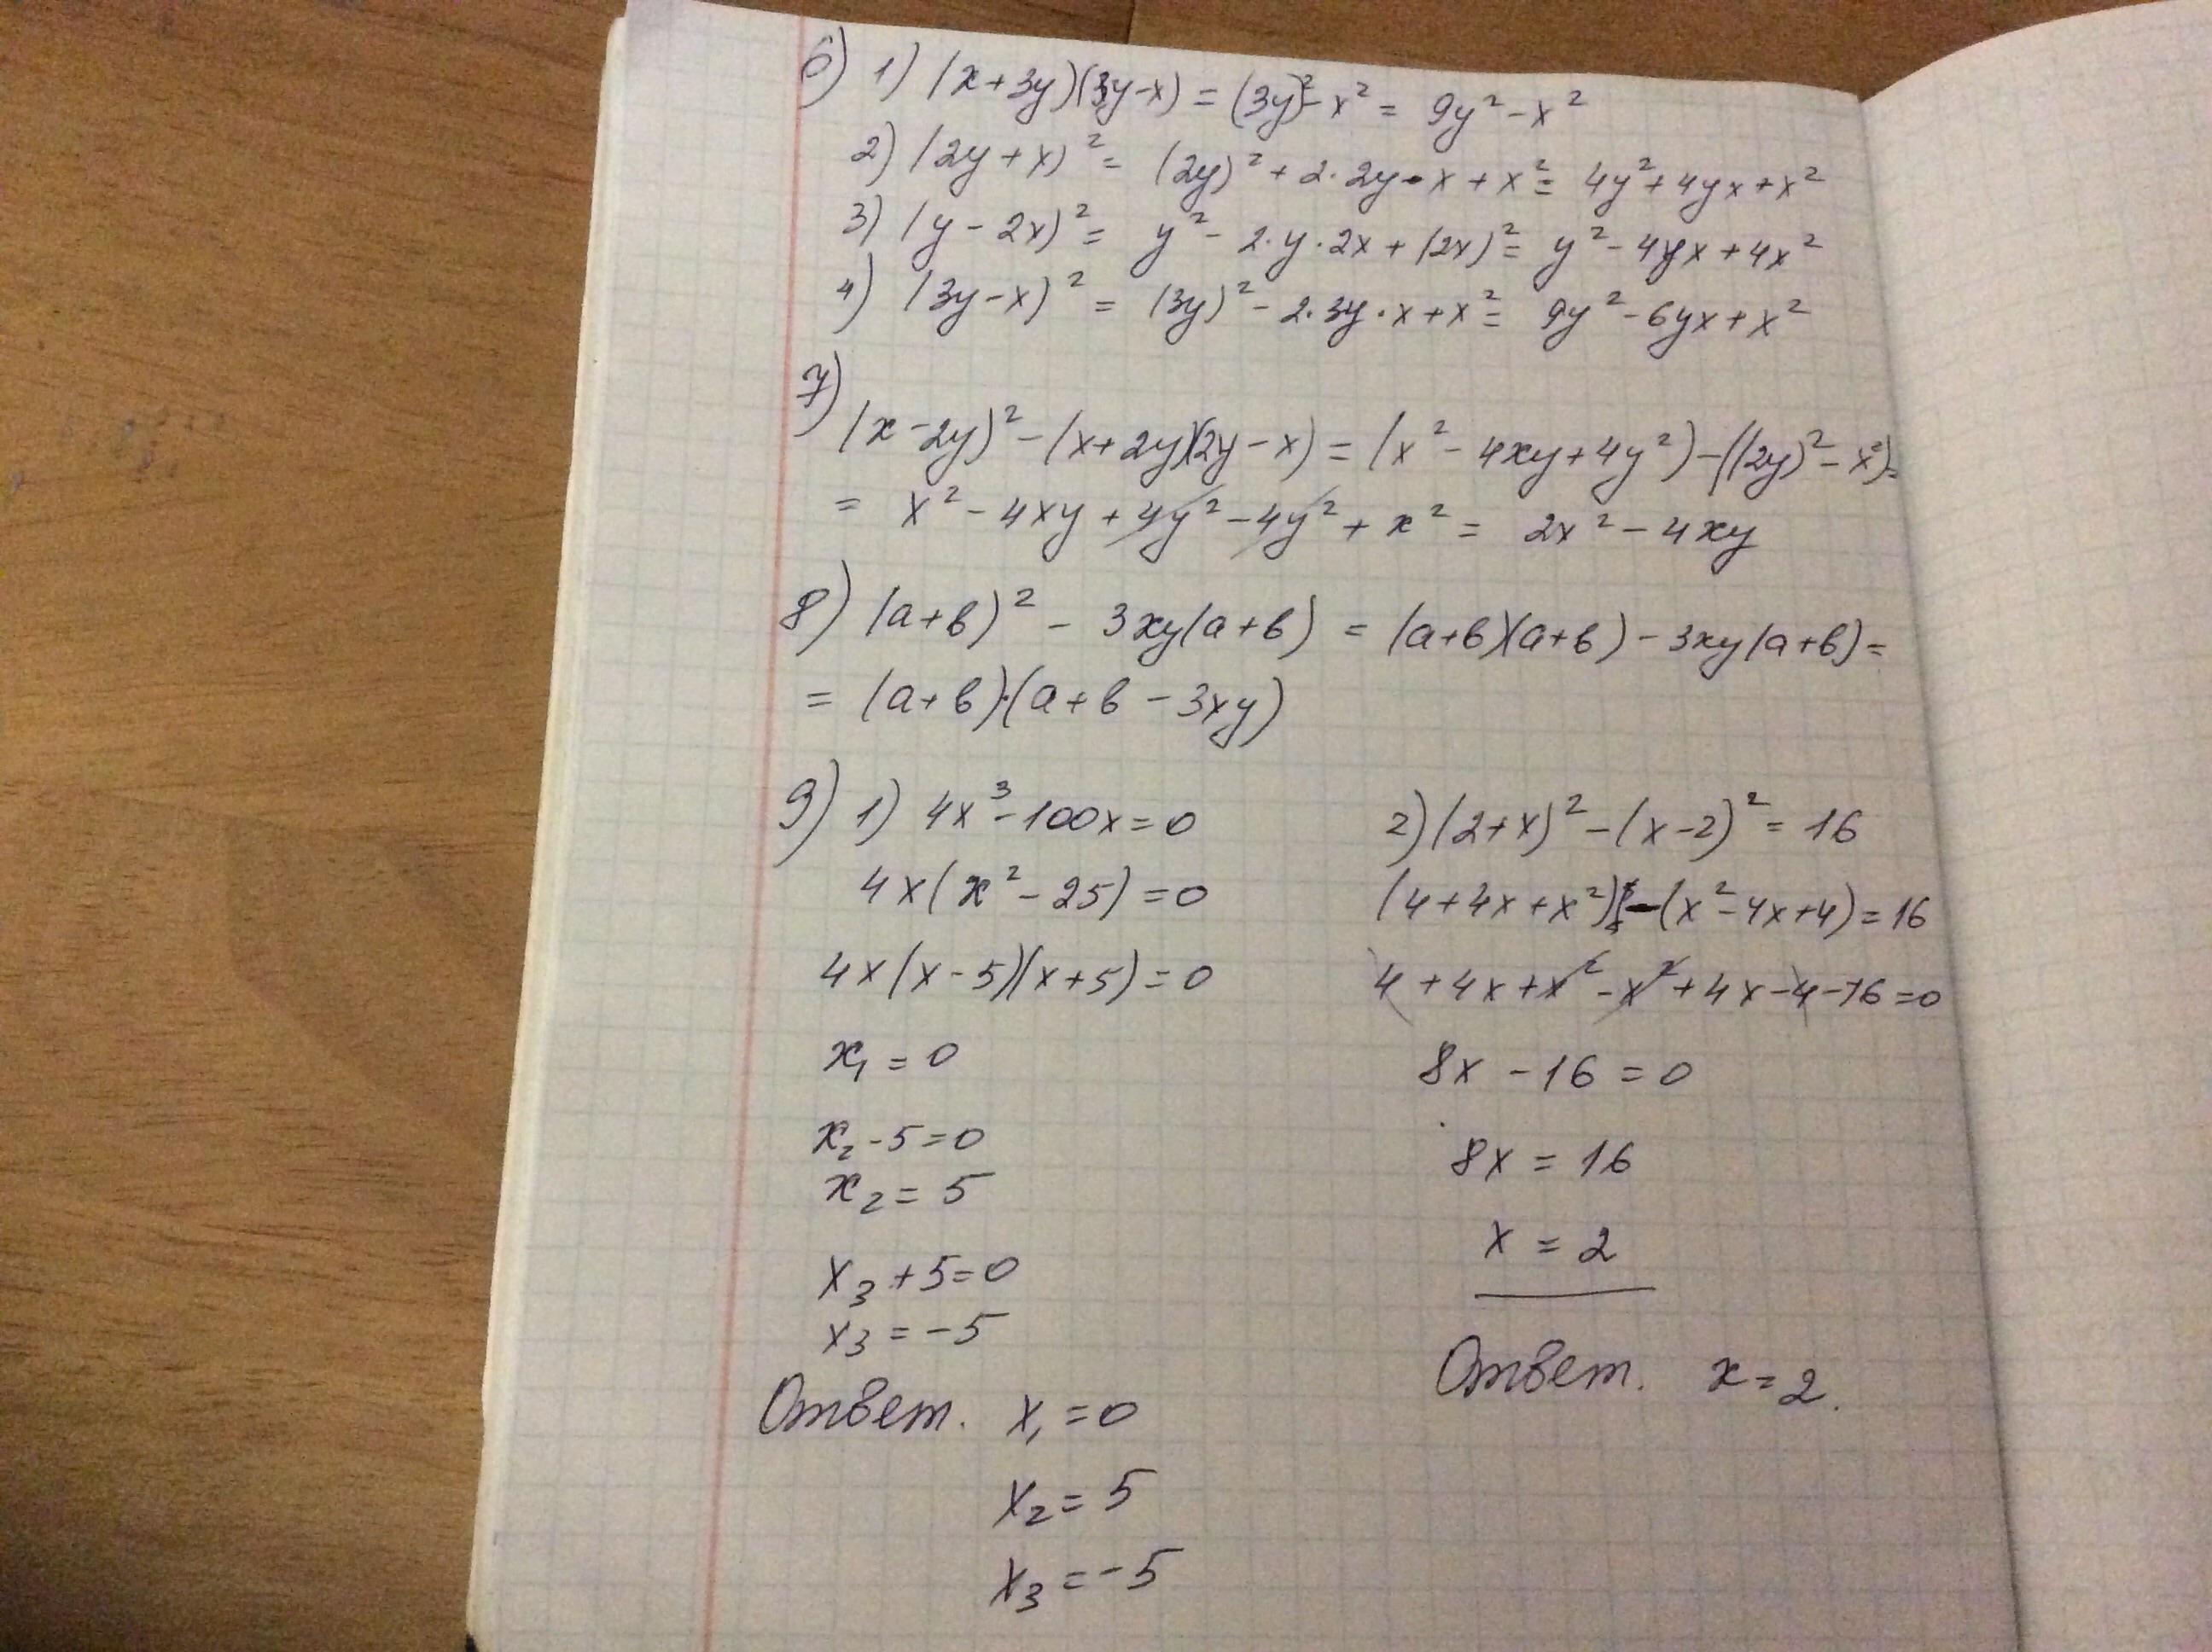 6) 1) (x+3y)(3y-x) = (3y)²- x² = 9y² - x²
2) (2y+x)² = (2y)² + 2·2y·x + x² = 4y²+4yx+x²
3) (y - 2x)² = y² - 2·y·2x + (2x)² = y² - 4yx + 4x²
4) (3y-x)² = (3y)² - 2·3y·x + x² = 9y² - 6yx + x²
7)
(x-2y)² - (x+2y)(2y-x) = (x² - 4xy+4y²) - ((2y)² - x²) =
= x² - 4xy + 4y² - 4y² + x² = 2x² - 4xy
8) (a+b)² - 3xy(a+b) = (a+b)(a+b) - 3xy(a+b) =
= (a+b)·(a+b - 3xy)
9) 1) 4x³-100x=0
4x(x² - 25) = 0
4x(x-5)(x+5) = 0
x₁ = 0
x₂ - 5 = 0
x₂ = 5
x₃ + 5 = 0
x₃ = -5
Ответ. x₁ = 0
x₂ = 5
x₃ = -5
2) (2+x)² - (x-2)² = 16
(4+4x+x²) - (x²-4x+4) = 16
4 + 4x + x² - x² + 4x - 4 - 16 = 0
8x - 16 = 0
8x = 16
x = 2
Ответ. x = 2.